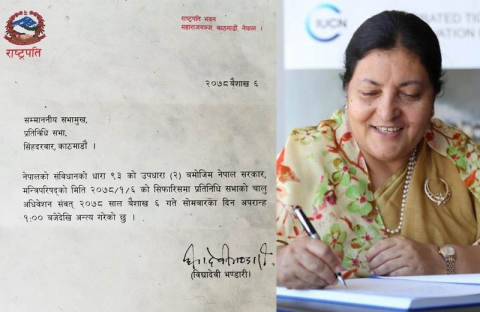 राष्ट्रपति
राष्ट्रपति भवन
महाराजगञ्ज, काठमाडौं नेपाल ।
२०७८ बैशाख ६
सम्माननीय सभामुख,
प्रतिनिधि सभा,
सिंहदरबार, काठमाडौं ।
नेपालको संविधानको धारा ९३ को उपधारा (२) बमोजिम नेपाल सरकार,
मन्त्रिपरिषद्को मिति २०७८/१/६ को सिफारिसमा प्रतिनिधि सभाको चालु
अधिवेशन संवत् २०७८ साल बैशाख ६ गते सोमबारका दिन अपरान्ह
१:०० बजेदेखि अन्त्य गरेको छु ।
(विद्यादेवी भण्डारी)
IUCN